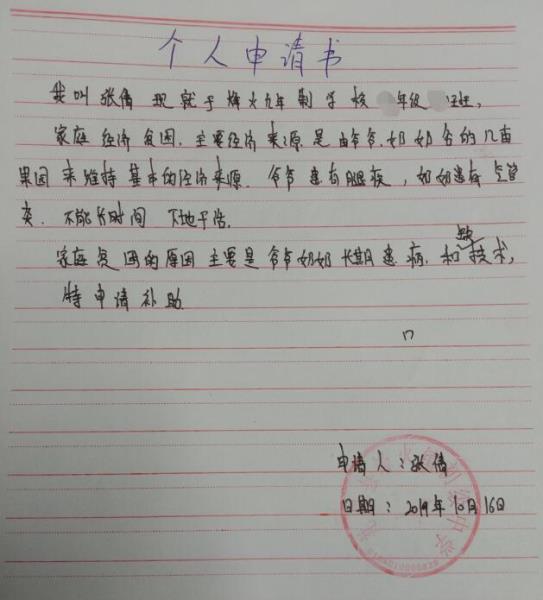 个人申请书
我叫张倩 现就于烽火九年制学校 年级 班，
家庭经济贫困，主要经济来源是由爷爷、奶奶务的几亩
果园来维持基本的经济来源. 爷爷患有腿疾，奶奶患有气管
炎. 不能长时间下地干活.
家庭贫困的原因主要是爷爷奶奶长期患病. 和缺技术，
特申请补助
申请人：张倩
日期：2019年10月16日